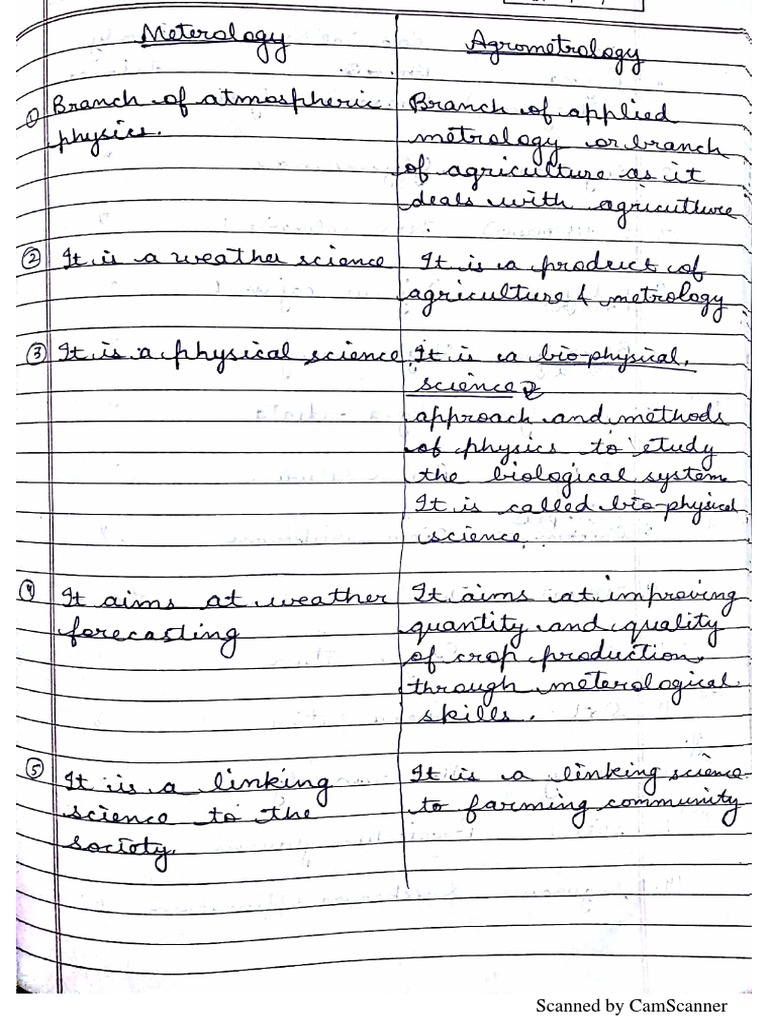 Meterology
Agrometrology
① Branch of atmospheric
physics.
Branch of applied
metrology or branch
of agriculture as it
deals with agricutture
② It is a weather science
It is a product of
agriculture & metrology
③ It is a physical science.
It is a bio-physical.
science
approach and methods
of physics to study
the biological system.
It is called bio-physical
science.
④ It aims at weather
forecasting
It aims at improving
quantity and quality
of crop production
through meterological
skills.
⑤ It is a linking
science to the
society.
It is a linking science
to farming community
Scanned by CamScanner